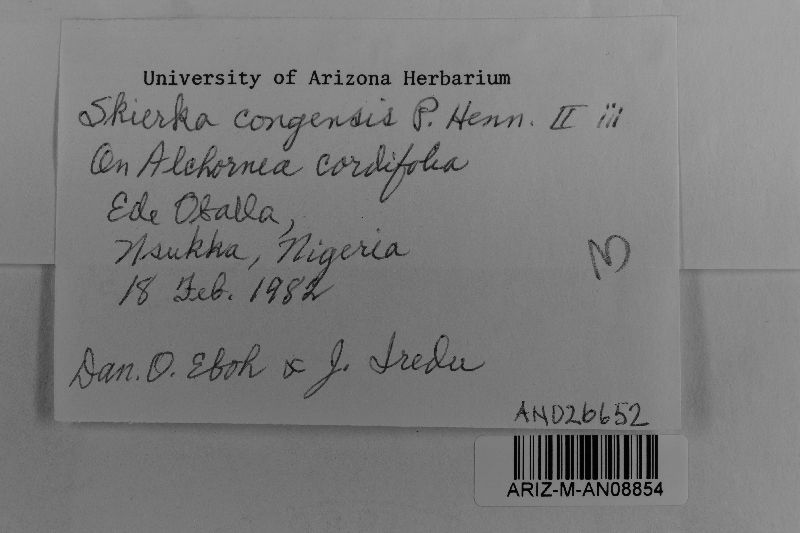 University of Arizona Herbarium
Skierka congensis P. Henn. II iii
On Alchornea cordifolia
Ede Oballa,
Nsukka, Nigeria
18 Feb. 1982
Dan. O. Eboh & J. Iredu
AN026652
ARIZ-M-AN08854